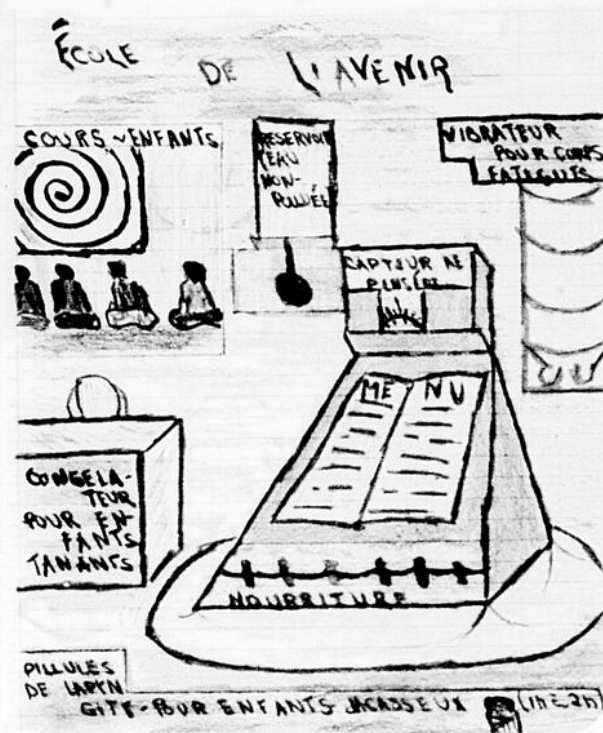 ÉCOLE DE L'AVENIR
COURS ~ ENFANTS
RESERVOIR
D'EAU
NON-
POLLUÉE
VIBRATEUR
POUR CORPS
FATIGUÉS
CAPTEUR DE
PENSÉE
MENU
CONGELA-
TEUR
POUR EN-
FANTS
TANANTS
NOURRITURE
PILLULES
DE LAPIN
GITE-POUR ENFANTS JACASSEUX (1h à 2h)